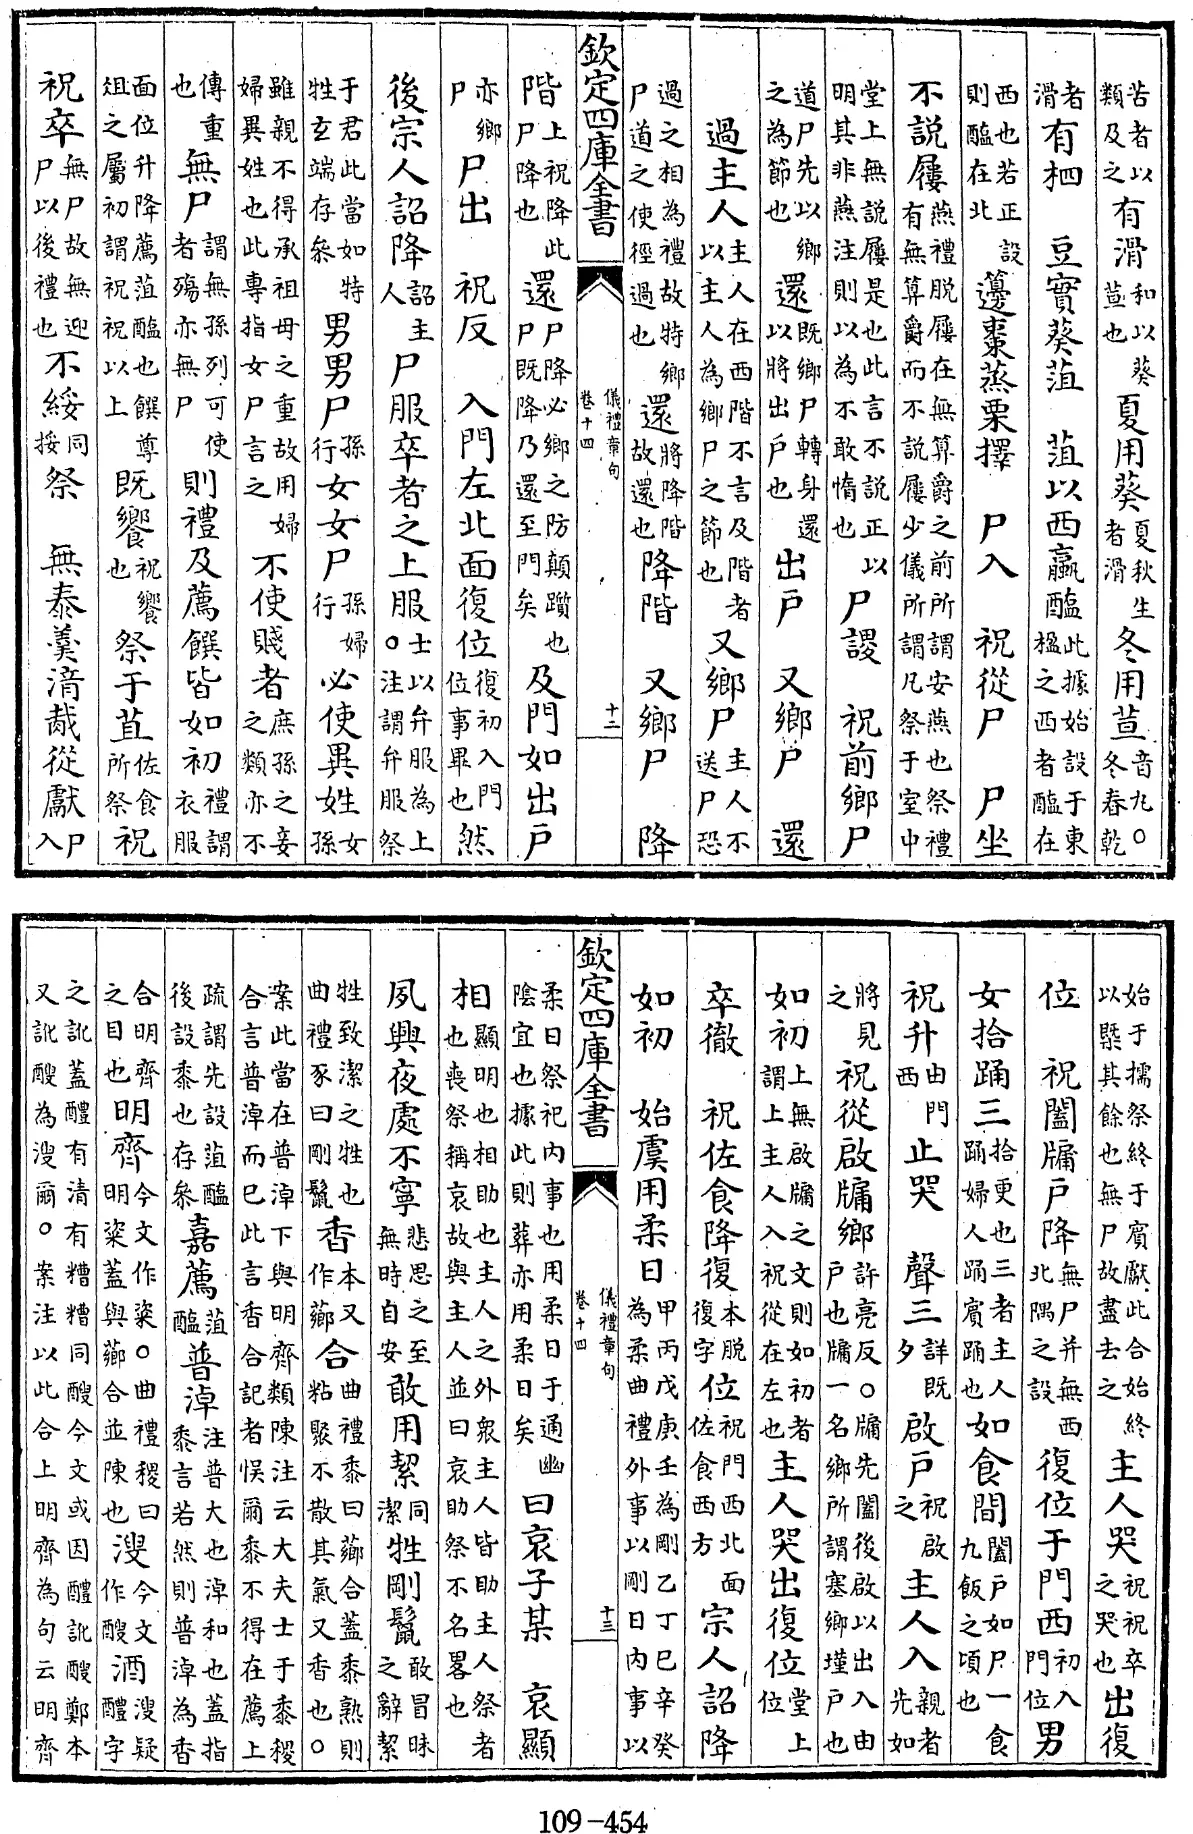 苦者以類及之有滑和以葵荁也夏用葵夏秋生者滑冬用荁音丸○冬春乾
者滑有柶 豆實葵菹 菹以西蠃醢此據始設于東楹之西者醢在
西也若正設則醢在北籩棗蒸栗擇 尸入 祝從尸 尸坐
不說屨燕禮脫屨在無算爵之前所謂安燕也祭禮有無算爵而不說屨少儀所謂凡祭于室中
堂上無說屨是也此言不說正以明其非燕注則以為不敢惰也尸謖 祝前鄉尸
道尸先以鄉之為節也還既鄉尸轉身還以將出戶也出戶 又鄉尸 還
過主人主人在西階不言及階者以主人為鄉尸之節也又鄉尸主人不送尸恐
過之相為禮故特鄉尸道之使徑過也還將降階故還也降階 又鄉尸 降
欽定四庫全書 儀禮章句 卷十四 十二
階上祝降此尸降也還尸降必鄉之防顛躓也尸既降乃還至門矣及門如出戶
亦鄉尸尸出 祝反 入門左北面復位復初入門位事畢也然
後宗人詔降詔主人尸服卒者之上服○士以弁服為上注謂弁服祭
于君此當如特牲玄端存參男男尸孫行女女尸孫婦行必使異姓女孫
雖親不得承祖母之重故用婦婦異姓也此專指女尸言之不使賤者庶孫之妾之類亦不
傳重也無尸謂無孫列可使者殤亦無尸則禮及薦饌皆如初禮謂衣服
面位升降薦菹醢也饌尊俎之屬初謂祝祝以上既饗祝饗也祭于苴佐食所祭祝
祝卒無尸故無迎尸以後禮也不綏同挼祭 無泰羹湆胾從獻尸入
始于擩祭終于賓獻此合始終以槩其餘也無尸故盡去之主人哭祝祝卒之哭也出復
位 祝闔牖戶降無尸并無西北隅之設復位于門西初入門位男
女拾踊三拾更也三者主人踊婦人踊賓踊也如食間闔戶如尸一食九飯之頃也
祝升由門西止哭 聲三詳既夕啟戶祝啟之主人入親者先如
將見之祝從啟牖鄉許亮反○牖先闔後啟以出入由戶也牖一名鄉所謂塞鄉墐戶也
如初上無啟牖之文則如初者謂上主人入祝從在左也主人哭出復位堂上位
卒徹 祝佐食降復本脫復字位祝門西北面佐食西方宗人詔降
如初 始虞用柔日甲丙戊庚壬為剛乙丁巳辛癸為柔曲禮外事以剛日內事以
欽定四庫全書 儀禮章句 卷十四 十三
柔日祭祀內事也用柔日于通幽陰宜也據此則葬亦用柔日矣曰哀子某 哀顯
相顯明也相助也主人之外衆主人皆助主人祭者也喪祭稱哀故與主人並曰哀助祭不名畧也
夙興夜處不寧悲思之至無時自安敢用絜同潔牲剛鬣敢冒昧之辭絜
牲致潔之牲也曲禮豕曰剛鬣香本又作薌合曲禮黍曰薌合蓋黍熟則粘聚不散其氣又香也○
案此當在普淖下與明齊類陳注云大夫士于黍稷合言普淖而已此言香合記者悞爾黍不得在薦上
疏謂先設菹醢後設黍也存參嘉薦菹醢普淖注普大也淖和也蓋指黍言若然則普淖為香
合明齊之目也明齊今文作粢○曲禮稷曰明粢蓋與薌合並陳也溲今文作醙酒溲疑醴字
之訛蓋醴有清有糟糟同醙今文或因醴訛醙鄭本又訛醙為溲爾○案注以此合上明齊為句云明齊
109-454